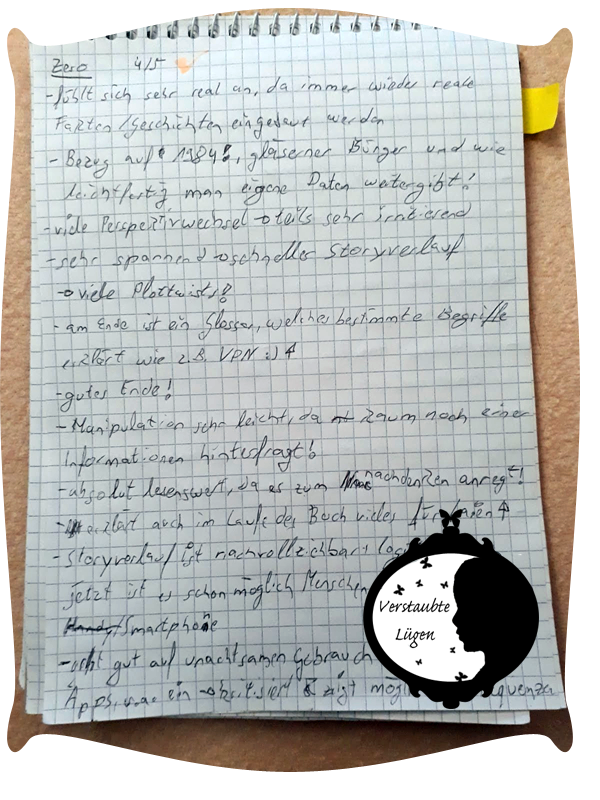 Zero 4/5
- fühlt sich sehr real an, da immer wieder reale
Fakten/Geschichten eingebaut werden
- Bezug auf "1984", gläserner Bürger und wie
leichtfertig man eigene Daten weitergibt!
- viele Perspektivwechsel → teils sehr irritierend
- sehr spannend → schneller Storyverlauf
→ viele Plottwists!
- am Ende ist ein Glossar, welches bestimmte Begriffe
erklärt wie z.B. VPN :)
- gutes Ende!
- Manipulation sehr leicht, da kaum noch einer
Informationen hinterfragt!
- absolut lesenswert, da es zum nachdenken anregt!
- erklärt auch im Laufe des Buch vieles für
- Storyverlauf ist nachvollziehbar &
jetzt ist es schon möglich Menschen
Smartphone
- geht gut auf unachtsamen Gebrauch
Apps, was ein zeigt
Verstaubte
Lügen